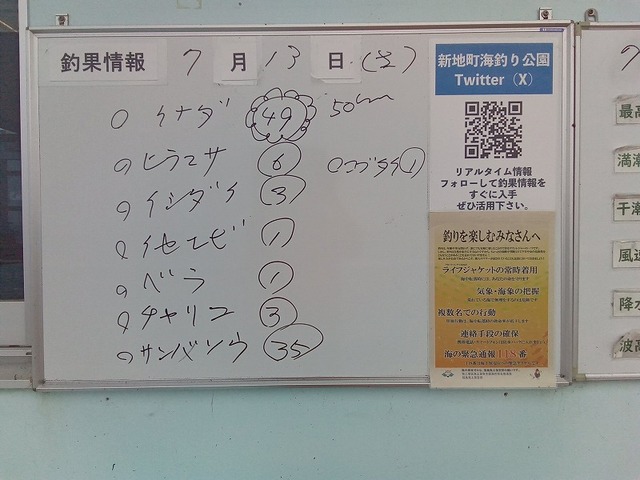 釣果情報 7月13日(土)
○イナダ 49 50cm
○ヒラマサ 6 ○コブダイ 1
○イシダイ 3
○イセエビ 1
○ベラ 1
○チャリコ 3
○サンバソウ 35
新地町海釣り公園
Twitter(X)
リアルタイム情報
フォローして釣果情報を
すぐに入手
ぜひ活用下さい。
釣りを楽しむみなさんへ
ライフジャケットの常時着用
気象・海象の把握
複数名での行動
連絡手段の確保
海の緊急通報118番
最高
満潮
干潮
風速
降水
波高